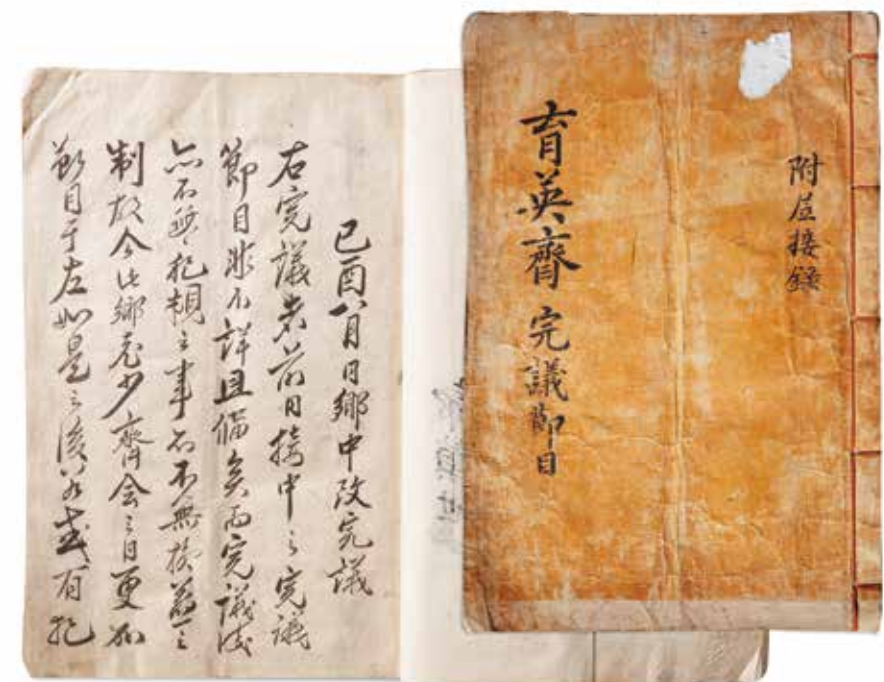 附居接錄
育英齋 完議節目
己酉八月日鄕中改完議
右完議者前日接中之完議
節目非不詳且備矣而完議
亦不無犯之事而不無損益之
制故今此鄕老少齊會之日更加
目于左如是之後若或有犯